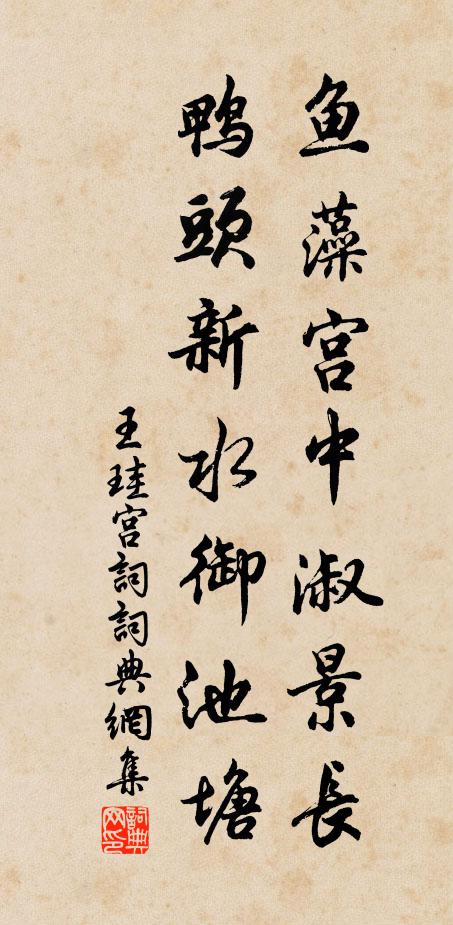 鱼藻宫中淑景長
鴨頭新水御池塘
王珪宫詞詞典網集
詞典網印